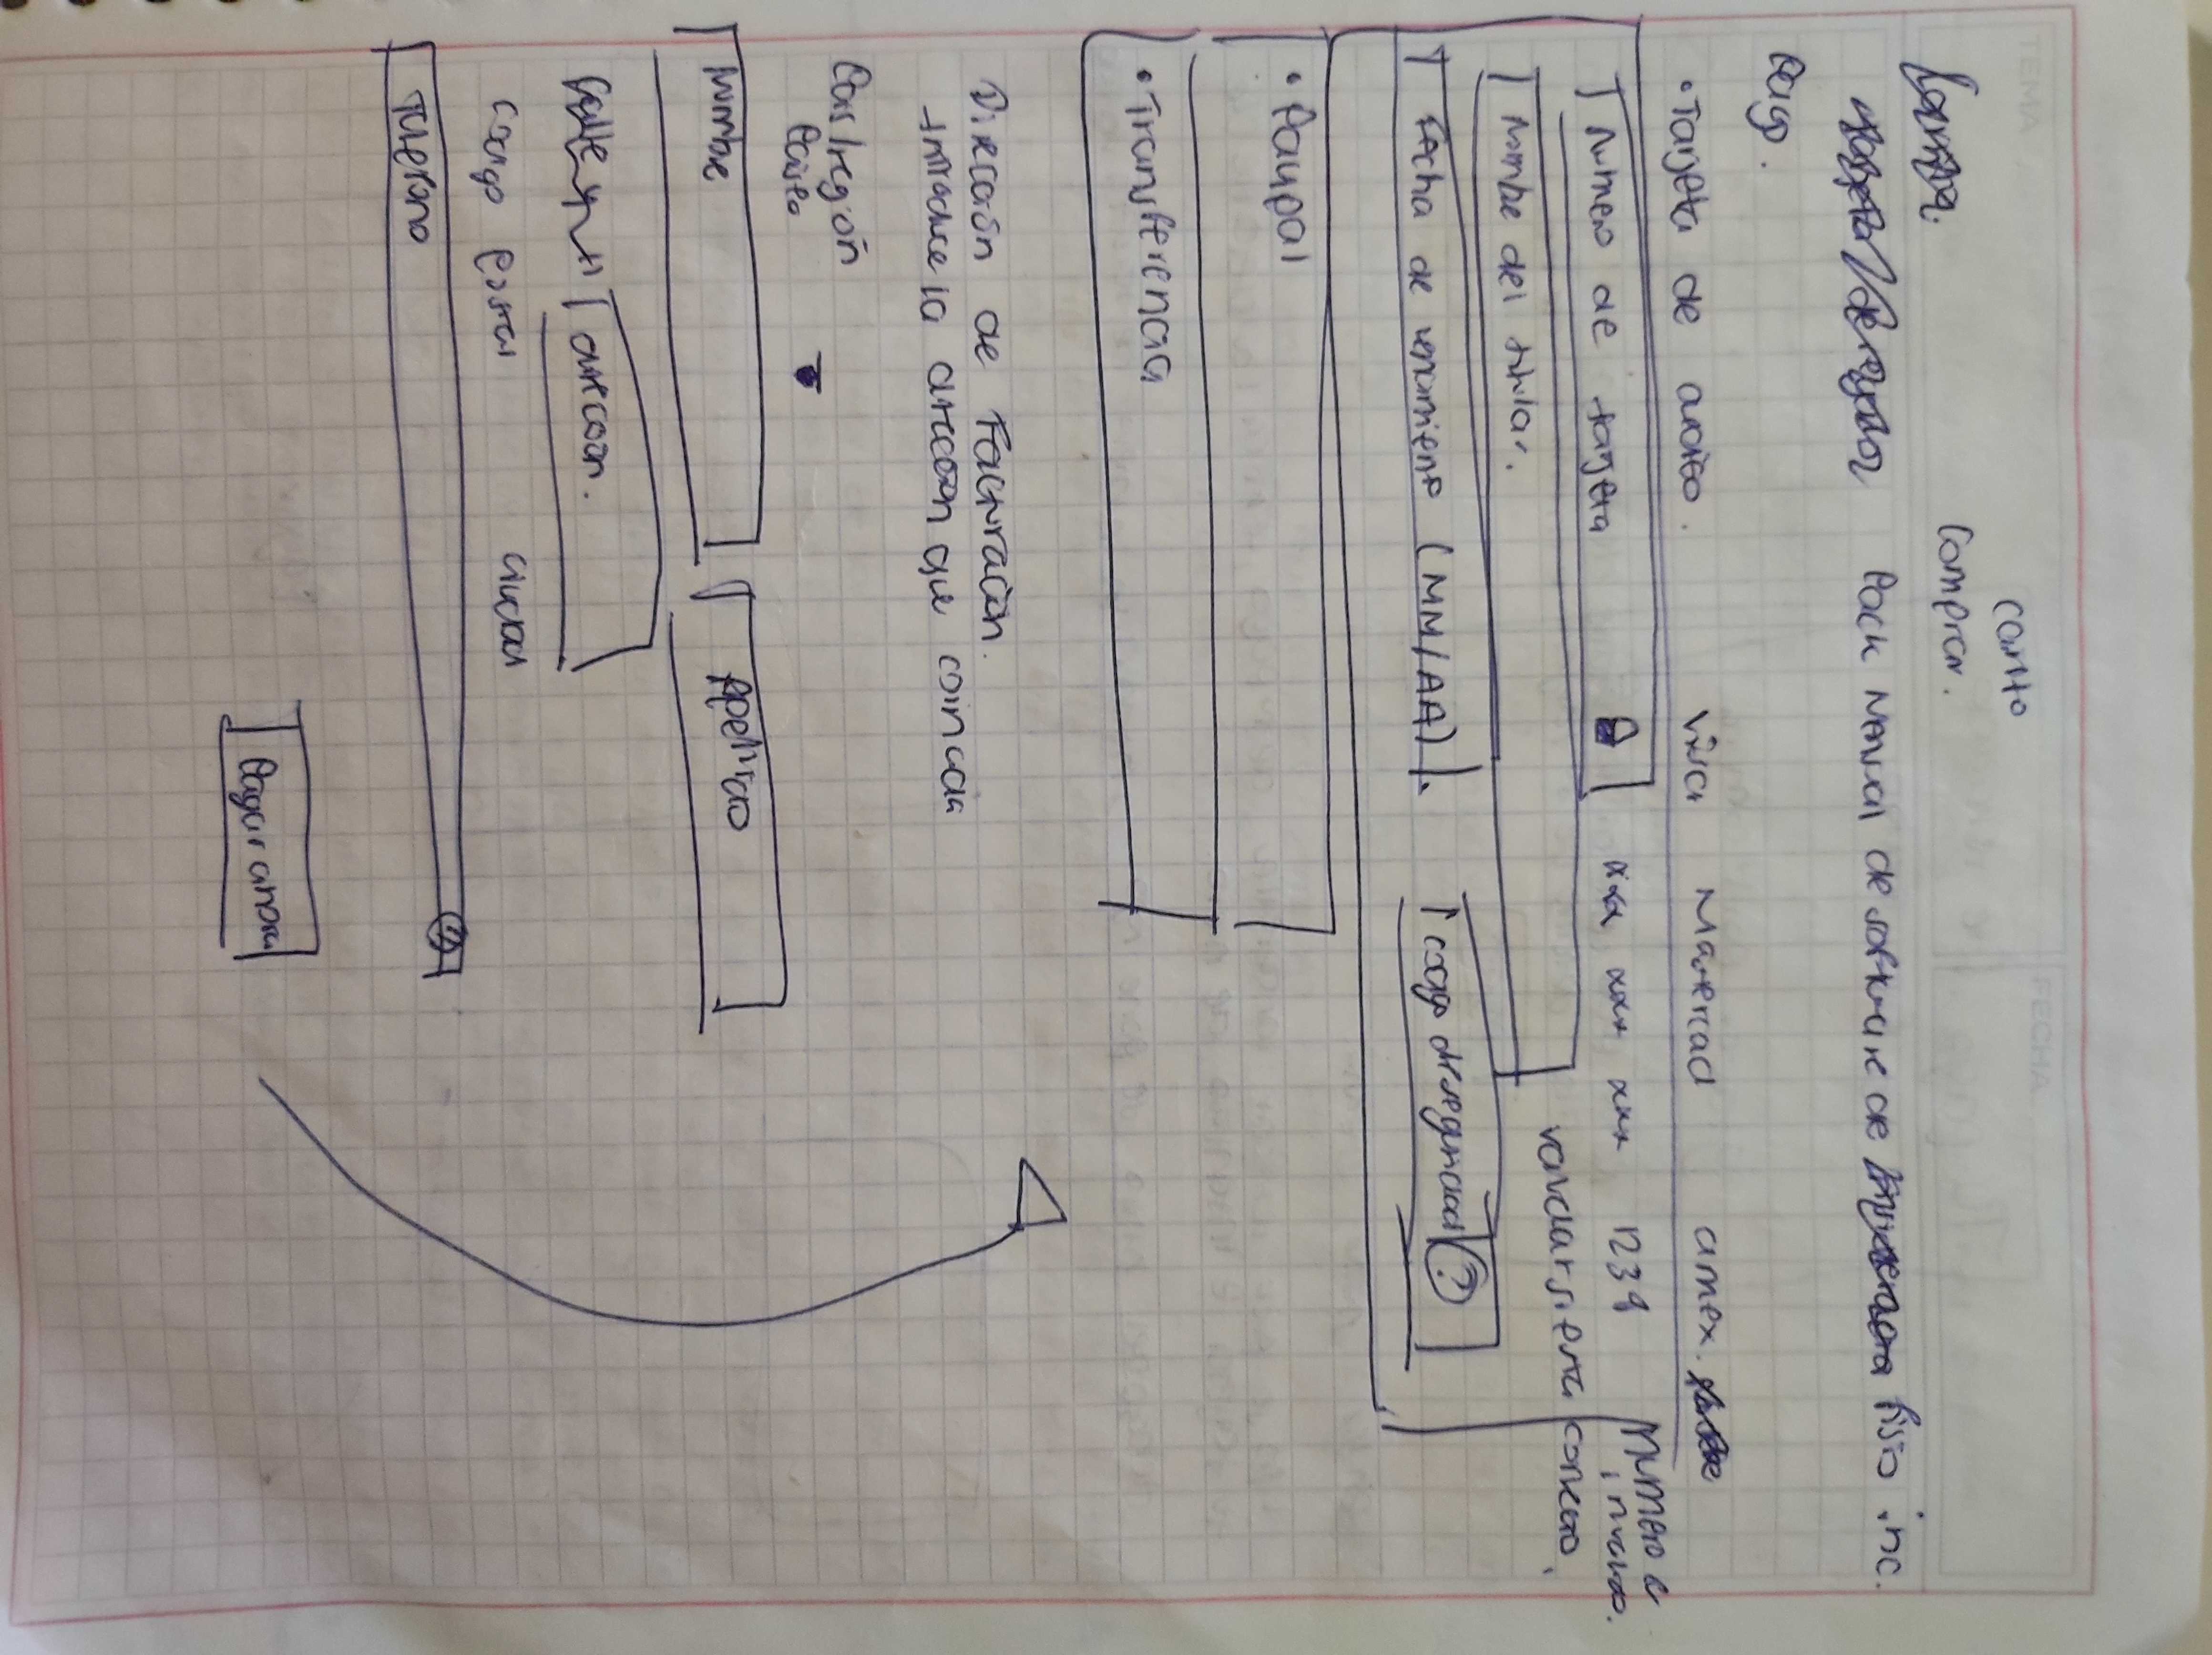 TEMA
FECHA
carrito
Comprar.
Pack Mensual de software de fisio inc.
Pago.
• Tarjeta de credito. Visa Mastercad amex.
Numero de tarjeta xxx xxx xxx 1239 Numero e invalido.
validar si esta correcto.
Nombe del titular.
Fecha de vencimiento (MM/AA). codigo de seguridad ?
• Paypal
• Transferencia
Dirección de Facturación.
Introduce la dirección que coincida
Pais/región
Nombre Apellido
Calle y dirección.
Codigo Postal Ciudad
Telefono ?
Pagar ahora